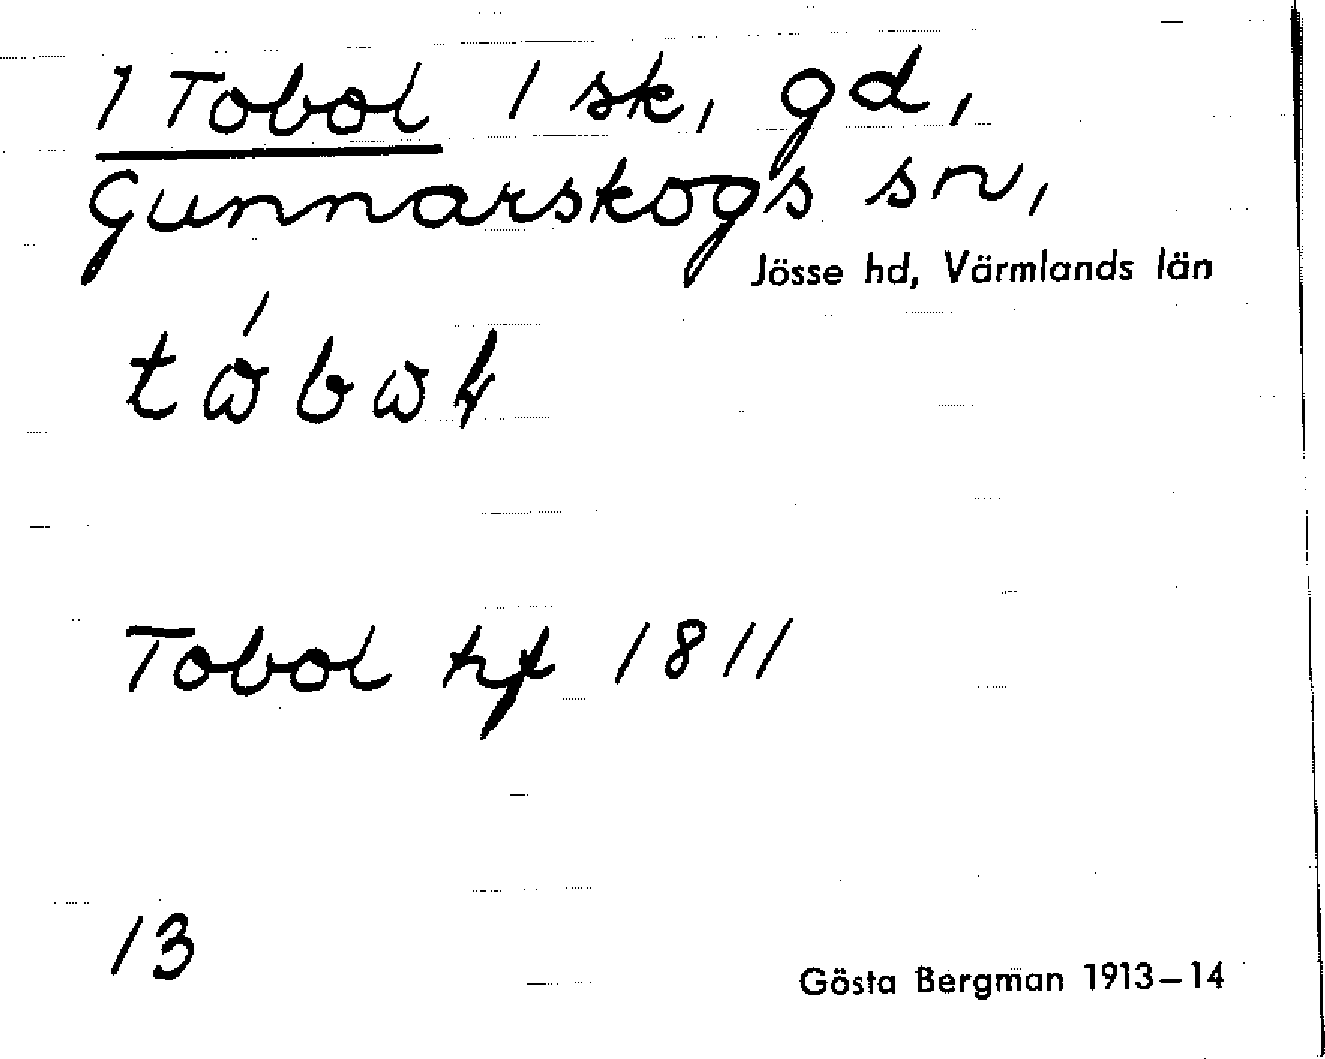 1 Tobol 1 sk, gd,
Gunnarskogs sn,
Jösse hd, Värmlands län
Tobol hf 1811
13
Gösta Bergman 1913–14